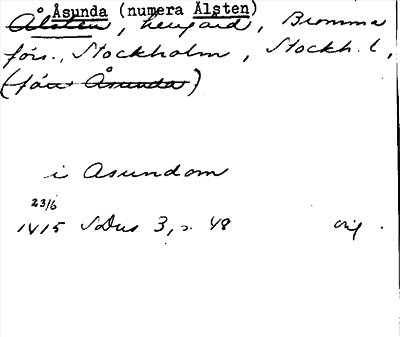 Åsunda (numera Ålsten)
Ålsten, herrgård, Bromma
förs., Stockholm, Stockh. l,
(förr Åsunda)
i Asundom
23/6
1415 SDns 3, s. 48 orig.